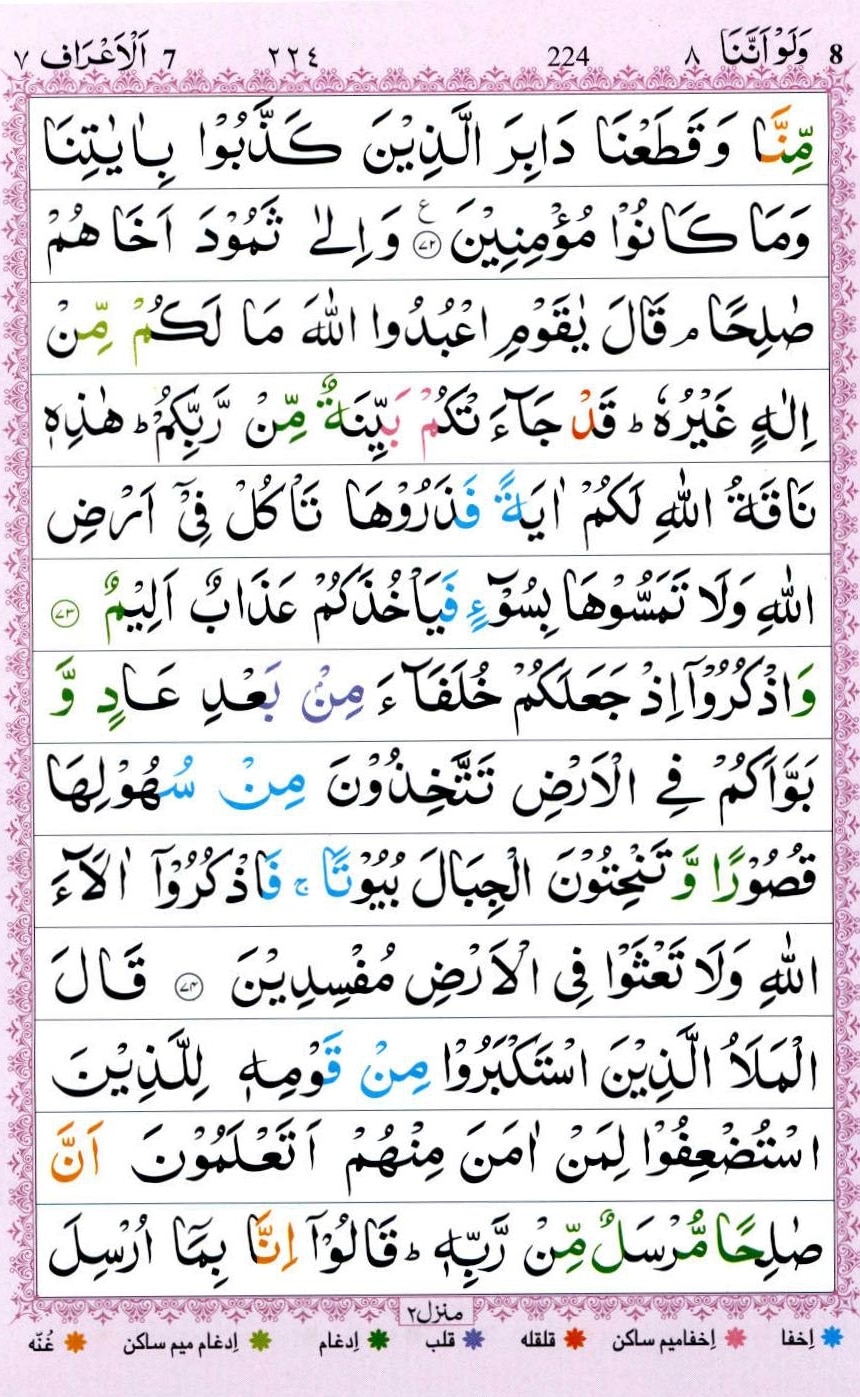 8 وَلَوْ اَنَّنَا ٨ 224 ٢٢٤ 7 اَلْاَعْرَاف ٧
مِّنَّا وَقَطَعْنَا دَابِرَ الَّذِيْنَ كَذَّبُوْا بِاٰيٰتِنَا
وَمَا كَانُوْا مُؤْمِنِيْنَ ۧ ﴿۷۲﴾ وَاِلٰى ثَمُوْدَ اَخَاهُمْ
صٰلِحًا ۘ قَالَ يٰقَوْمِ اعْبُدُوا اللّٰهَ مَا لَكُمْ مِّنْ
اِلٰهٍ غَيْرُهٗ ؕ قَدْ جَآءَتْكُمْ بَيِّنَةٌ مِّنْ رَّبِّكُمْ ؕ هٰذِهٖ
نَاقَةُ اللّٰهِ لَكُمْ اٰيَةً فَذَرُوْهَا تَاْكُلْ فِىْۤ اَرْضِ
اللّٰهِ وَلَا تَمَسُّوْهَا بِسُوْٓءٍ فَيَاْخُذَكُمْ عَذَابٌ اَلِيْمٌ ﴿۷۳﴾
وَاذْكُرُوْۤا اِذْ جَعَلَكُمْ خُلَفَآءَ مِنْۢ بَعْدِ عَادٍ وَّ
بَوَّاَكُمْ فِى الْاَرْضِ تَتَّخِذُوْنَ مِنْ سُهُوْلِهَا
قُصُوْرًا وَّ تَنْحِتُوْنَ الْجِبَالَ بُيُوْتًا ۚ فَاذْكُرُوْۤا اٰلَآءَ
اللّٰهِ وَلَا تَعْثَوْا فِى الْاَرْضِ مُفْسِدِيْنَ ﴿۷۴﴾ قَالَ
الْمَلَاُ الَّذِيْنَ اسْتَكْبَرُوْا مِنْ قَوْمِهٖ لِلَّذِيْنَ
اسْتُضْعِفُوْا لِمَنْ اٰمَنَ مِنْهُمْ اَتَعْلَمُوْنَ اَنَّ
صٰلِحًا مُّرْسَلٌ مِّنْ رَّبِّهٖ ؕ قَالُوْۤا اِنَّا بِمَاۤ اُرْسِلَ
منزل۲
اِخفا اِخفامیم ساکن قلقله قلب اِدغام اِدغام میم ساکن غُنّه